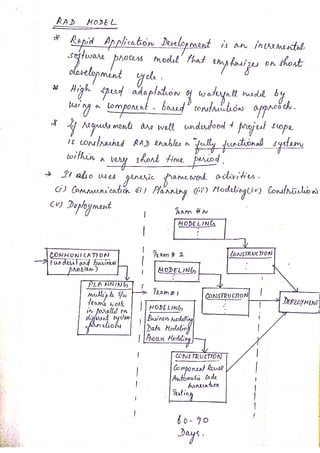 RAD MODEL
* Rapid Application Development is an incremental
software process model that emphasizes on short
development cycle.
* High speed adaptation of waterfall model by
using a component-based construction approach.
* If requirements are well understood & project scope
is constrained RAD enables a "fully functional system"
within a very short time period.
→ It also uses generic framework activities.
(i) Communication (ii) Planning (iii) Modeling (iv) Construction
(v) Deployment
Team # N
MODELING
COMMUNICATION
(understand business
problem)
Team # 2
MODELING
CONSTRUCTION
PLANNING
multiple S/w
teams work
in parallel on
different system
functions
Team # 1
MODELING
Business modelling
Data Modeling
Process Modeling
CONSTRUCTION
DEPLOYMENT
CONSTRUCTION
Component Reuse
Automatic Code
Generation
Testing
60-90
Days.